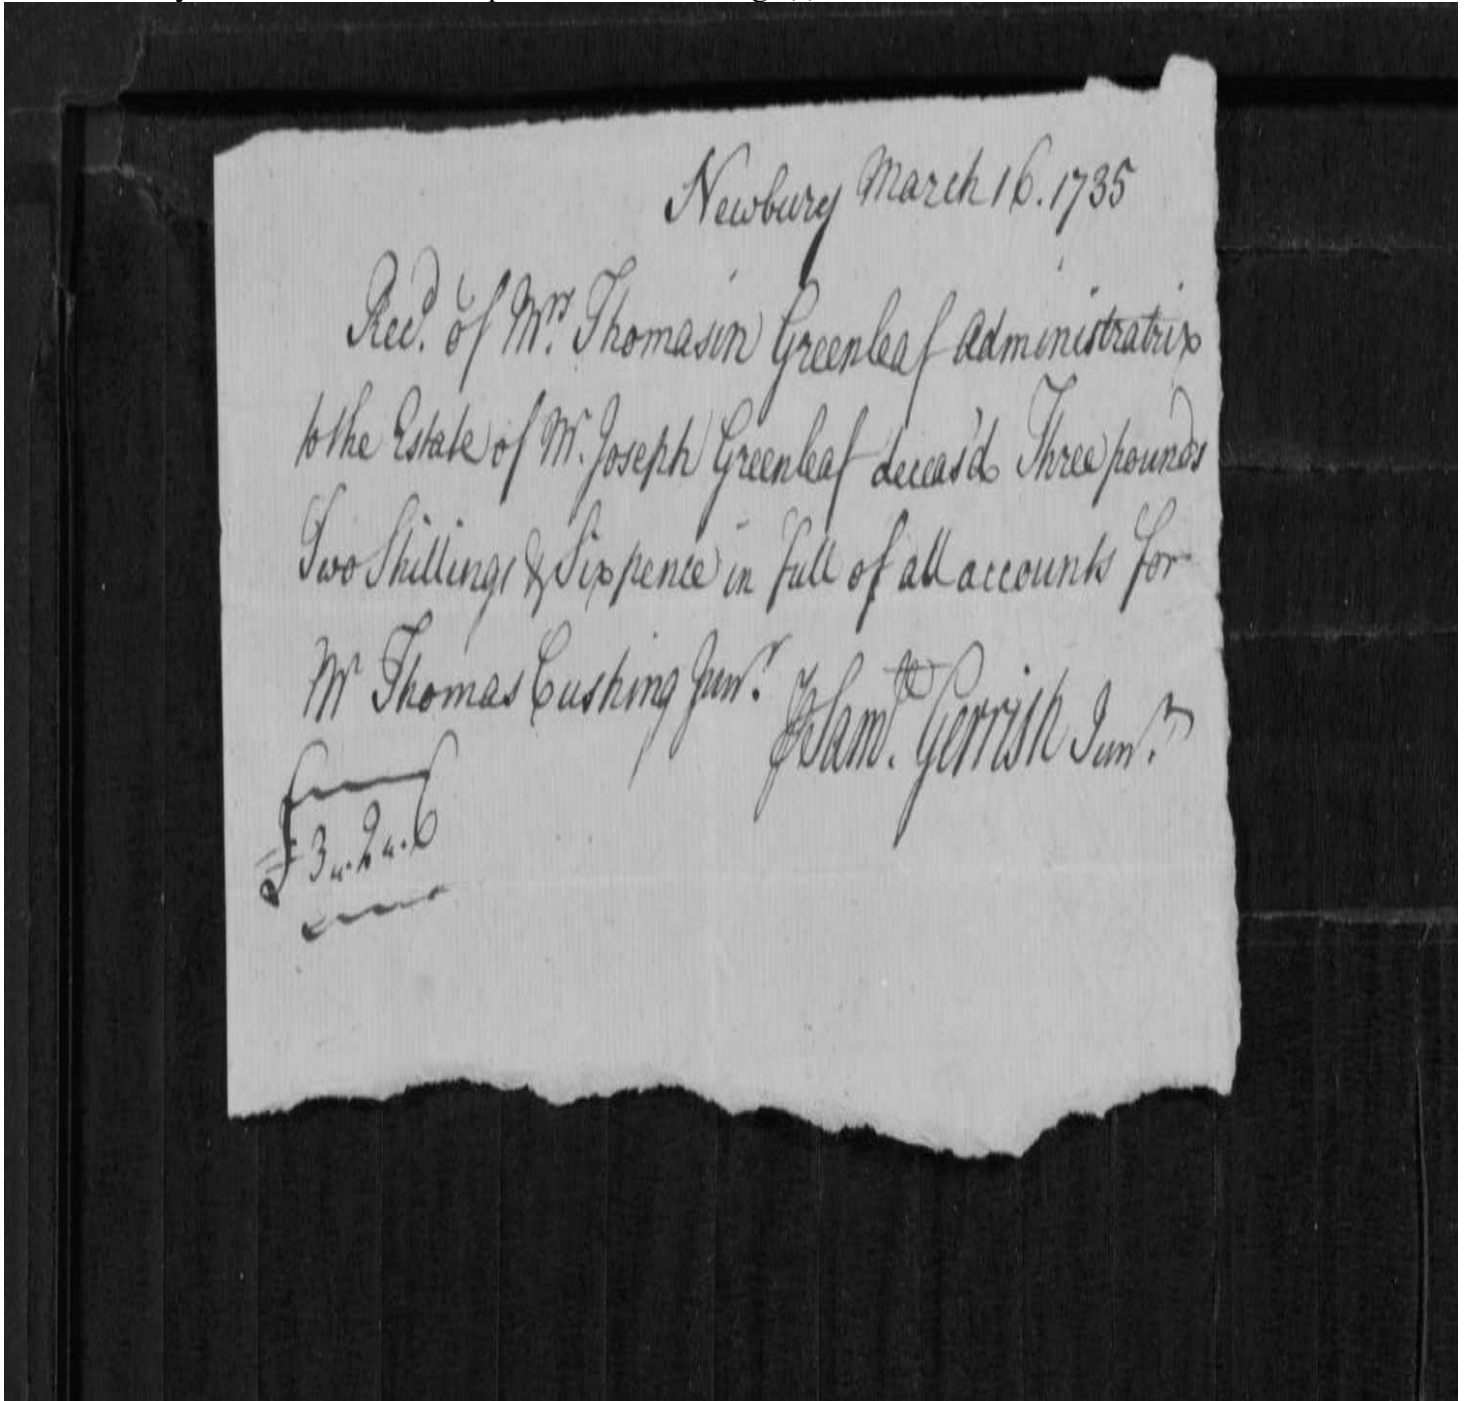 Newbury March 16. 1735
Recd. of Mrs. Thomasin Greenleaf Administratrix
to the Estate of Mr. Joseph Greenleaf deceas'd Three pounds
Two Shillings & Sixpence in full of all accounts for
Mr Thomas Cushing Junr.
Saml. Gerrish Junr.
£3 " 2 " 6